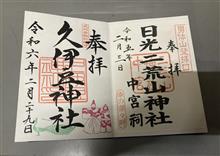 奉拝
日光二荒山神社
中宮祠
令和五年
二月三日
奉拝
久伊豆神社
令和六年二月二十九日